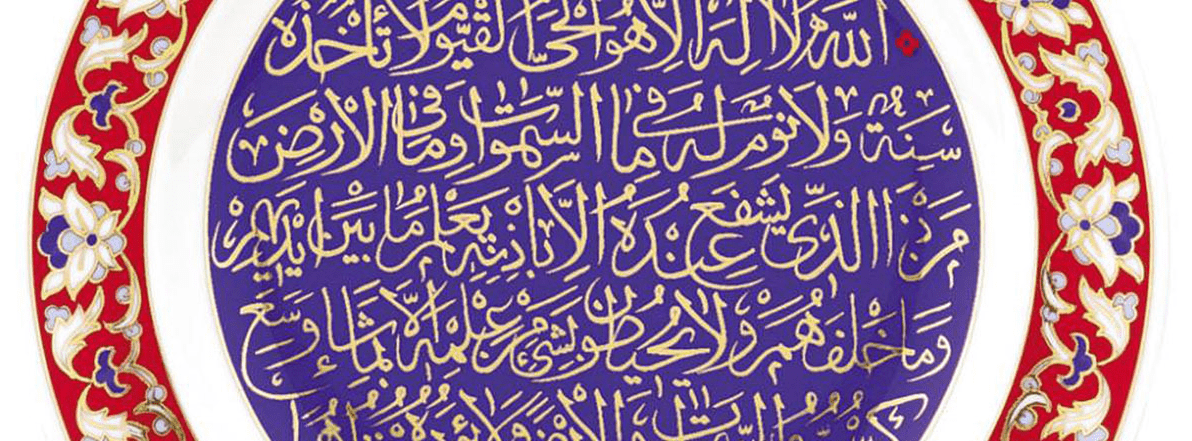 اللّٰهُ لَا إِلٰهَ إِلَّا هُوَ الْحَيُّ الْقَيُّومُ لَا تَأْخُذُهُ
سِنَةٌ وَلَا نَوْمٌ لَهُ مَا فِي السَّمٰوَاتِ وَمَا فِي الْأَرْضِ
مَنْ ذَا الَّذِي يَشْفَعُ عِنْدَهُ إِلَّا بِإِذْنِهِ يَعْلَمُ مَا بَيْنَ أَيْدِيهِمْ
وَمَا خَلْفَهُمْ وَلَا يُحِيطُونَ بِشَيْءٍ مِنْ عِلْمِهِ إِلَّا بِمَا شَاءَ وَسِعَ
كُرْسِيُّهُ السَّمٰوَاتِ وَالْأَرْضَ وَلَا يَئُودُهُ حِفْظُهُمَا